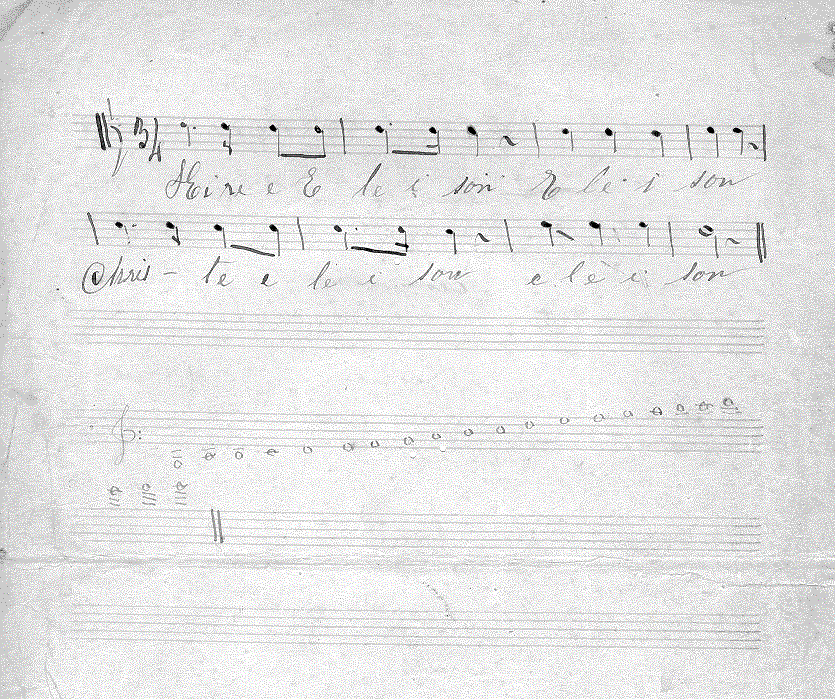 3/4
Kire e E le i son E le i son
Chris - te e le i son e lè i son